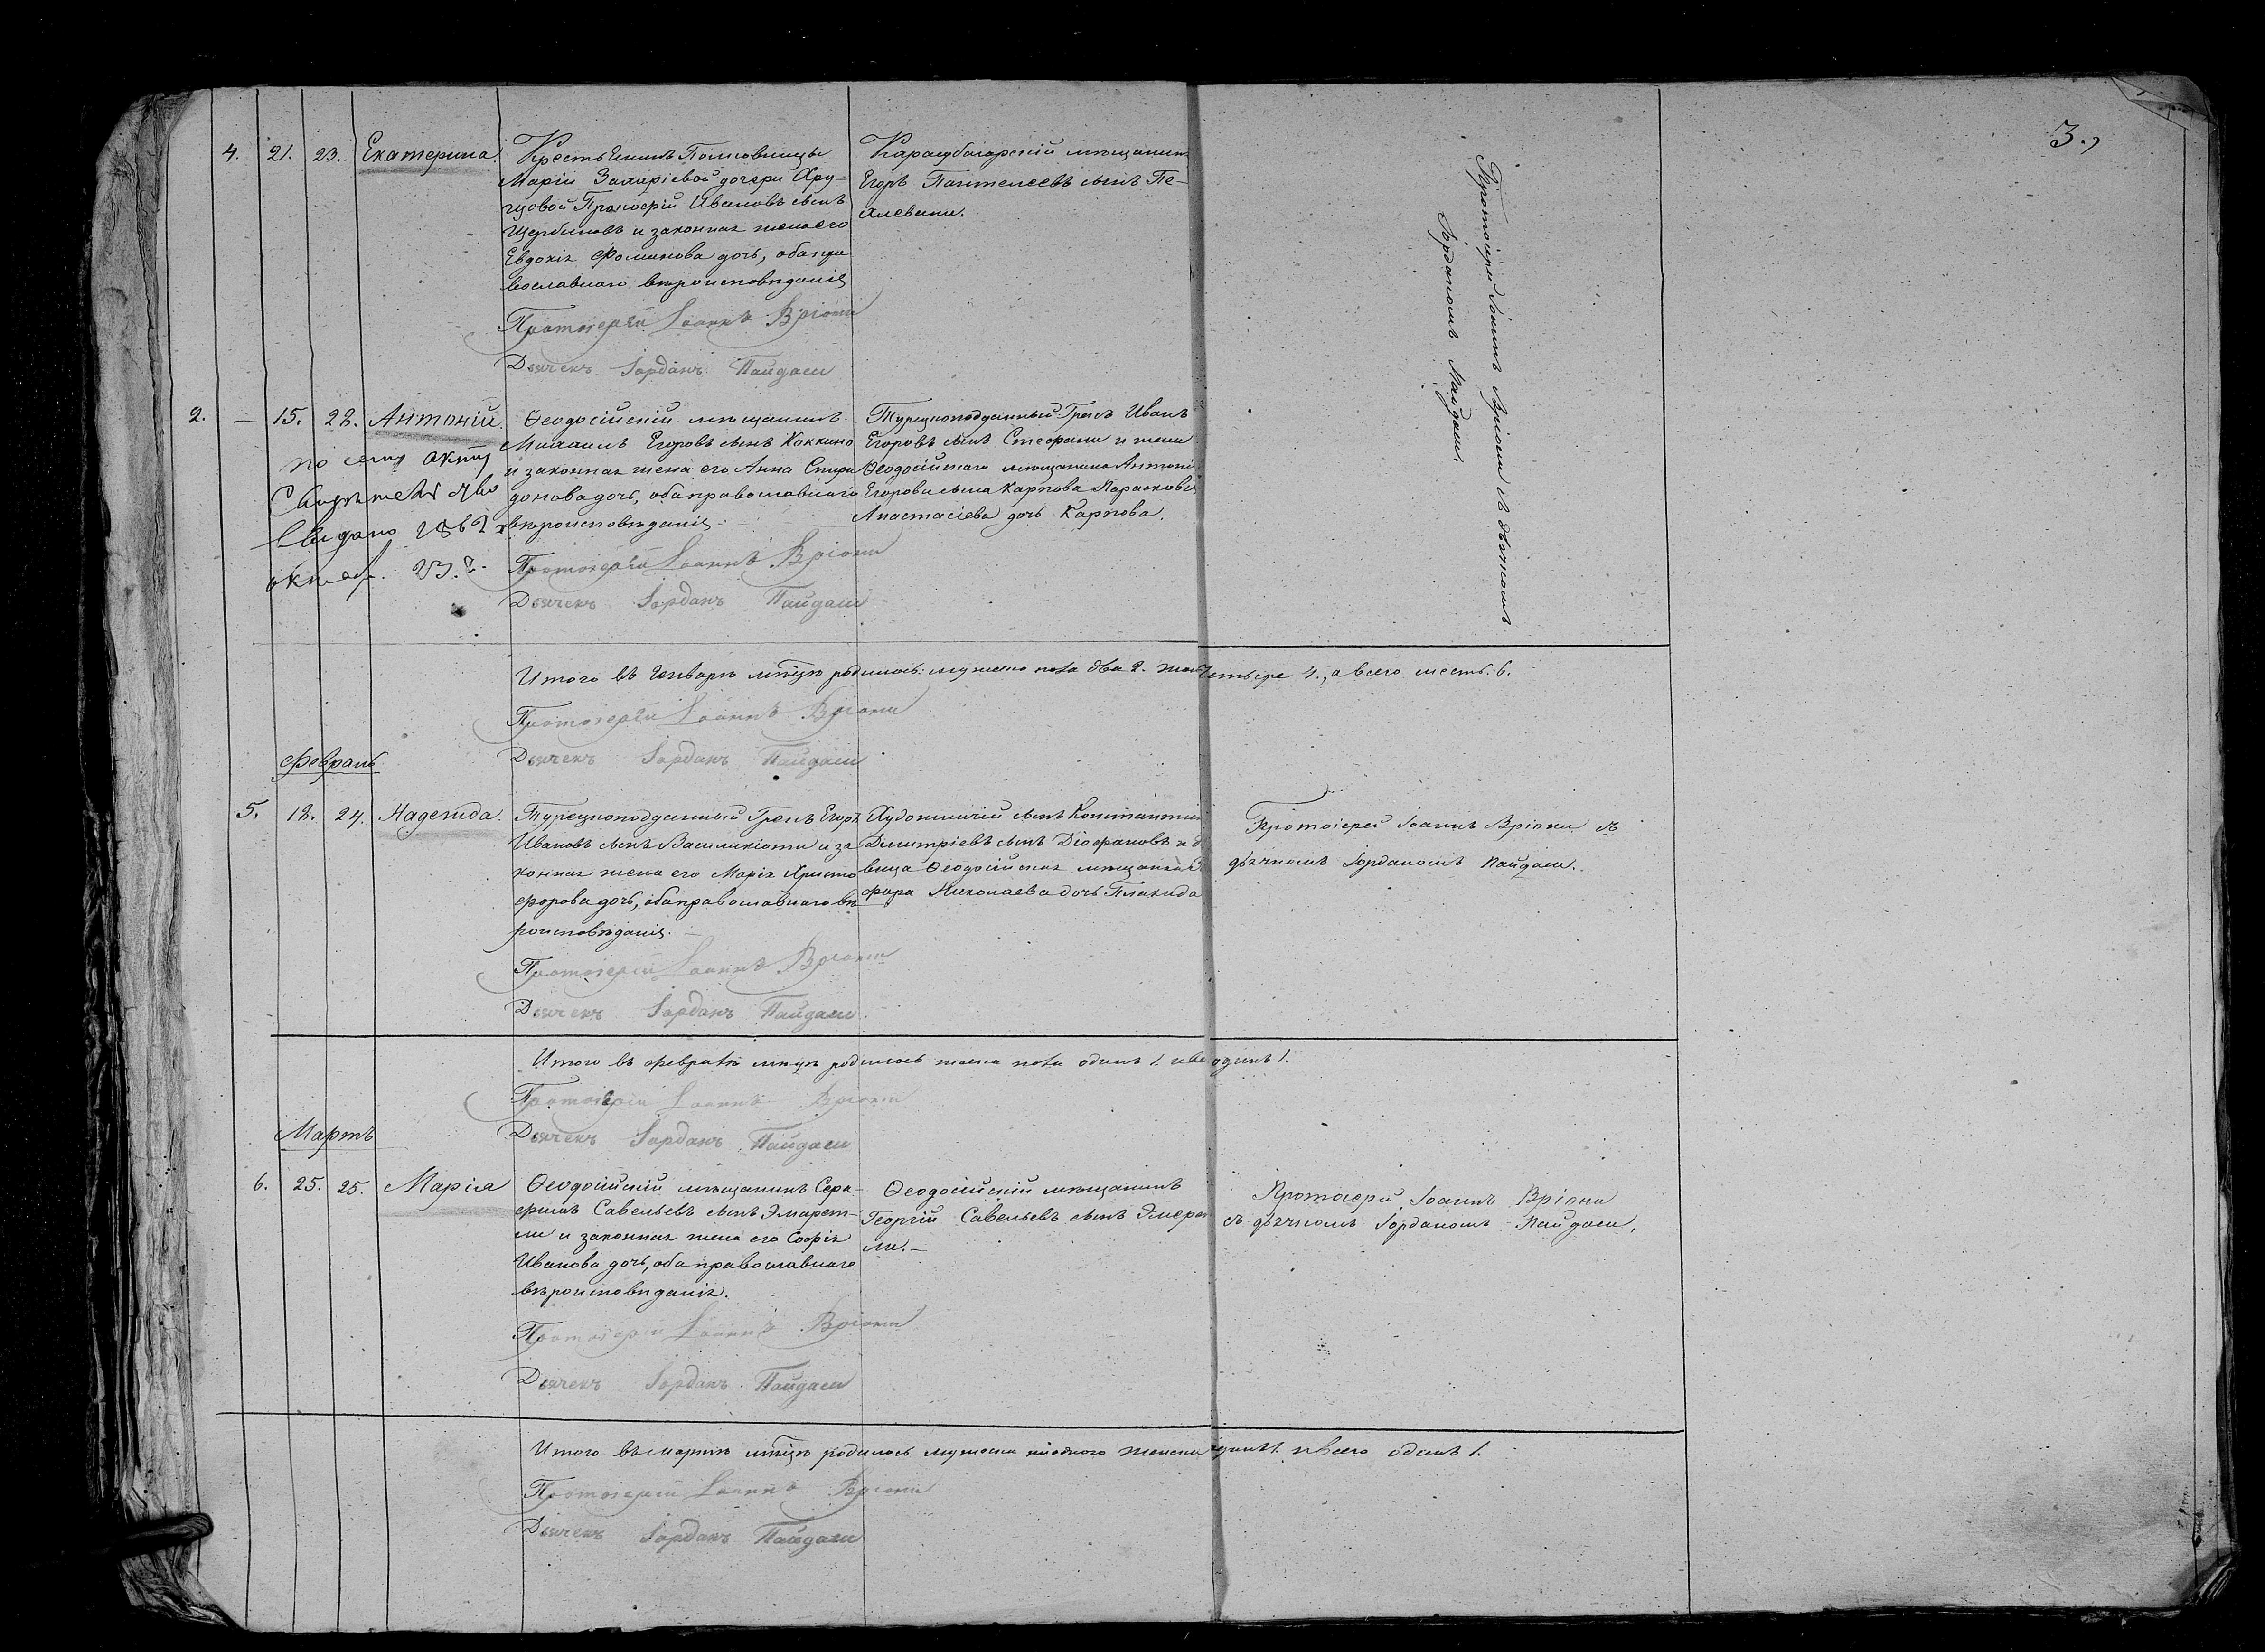 3.
4. 21. 23. Екатерина.
Крестьянинъ Полковницы
Маріи дочери Хру-
щовой Прокофій Ивановъ сынъ
Щербиновъ и законная жена его
Евдокія Фоминова дочь, оба пра
вославнаго вѣроисповѣданія
Протоіерей Іоаннъ Вріони
Дьячекъ Іорданъ Пайдаси
Карасубазарскій мѣщанинъ
Егоръ Пантелеевъ сынъ Пе-
хлевани.
Протоіерей Іоаннъ Вріони съ дьячкомъ
Іорданомъ Пайдаси.
2. — 15. 22. Антоній.
по сему акту
Свидѣтельство
выдано 1862
октяб. 23.
Ѳеодосійскій мѣщанинъ
Михаилъ Егоровъ сынъ Коккино
и законная жена его Анна Спири
донова дочь, оба православнаго
вѣроисповѣданія.
Протоіерей Іоаннъ Вріони
Дьячекъ Іорданъ Пайдаси
Турецкоподданный Грекъ Иванъ
Егоровъ сынъ Стефани и жена
Ѳеодосійскаго мѣщанина Антоні
Егорова сына Карпова Параскевія
Анастасіева дочь Карпова.
Итого въ Генварѣ мѣсяцѣ родилось: мужеска пола два 2. жен четыре 4., а всего шесть. 6.
Протоіерей Іоаннъ Вріони
Дьячекъ Іорданъ Пайдаси
Февраль
5. 12. 24. Надежда.
Турецкоподданный Грекъ Егоръ
Ивановъ сынъ Василикіоти и за
конная жена его Марія Христо
форова дочь, оба православнаго вѣ
роисповѣданія.
Протоіерей Іоаннъ Вріони
Дьячекъ Іорданъ Пайдаси
сынъ Константинъ
Дмитріевъ сынъ Діофановъ и дѣ
вица Ѳеодосійская мѣщанка
Николаева дочь Плакида
Протоіерей Іоаннъ Вріони съ
дьячкомъ Іорданомъ Пайдаси.
Итого въ Февралѣ мѣсяцѣ родилось женска пола одинъ 1. и все одинъ 1.
Протоіерей Іоаннъ Вріони
Дьячекъ Іорданъ Пайдаси
Мартъ
6. 25. 25. Марія
Ѳеодосійскій мѣщанинъ Сера-
фимъ Савельевъ сынъ Эмарет-
ли и законная жена его Софія
Иванова дочь, оба православнаго
вѣроисповѣданія.
Протоіерей Іоаннъ Вріони
Дьячекъ Іорданъ Пайдаси
Ѳеодосійскій мѣщанинъ
Георгій Савельевъ сынъ Эмерет
ли. —
Протоіерей Іоаннъ Вріони
съ дьячкомъ Іорданомъ Пайдаси.
Итого въ Мартѣ мѣсяцѣ родилось мужеска ни одного женска один 1. и всего одинъ 1.
Протоіерей Іоаннъ Вріони
Дьячекъ Іорданъ Пайдаси